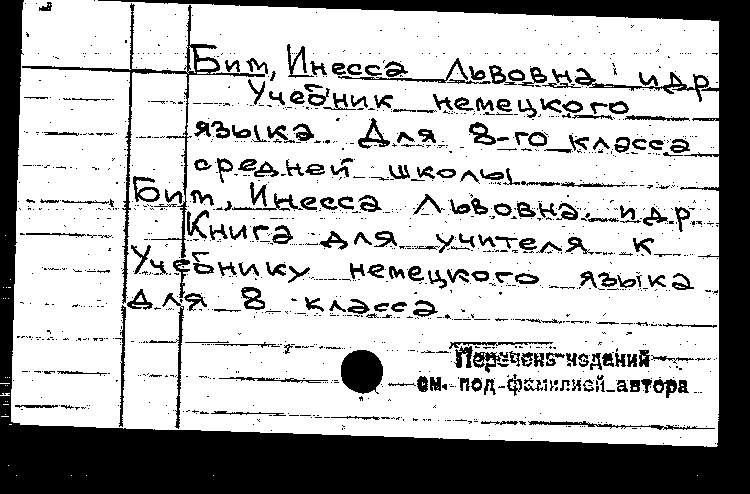 Бим, Инесса Львовна и др
Учебник немецкого
языка. Для 8-го класса
средней школы
Бим, Инесса Львовна. и др.
Книга для учителя к
Учебнику немецкого языка
для 8 класса.
Перечень изданий
см. под фамилией автора